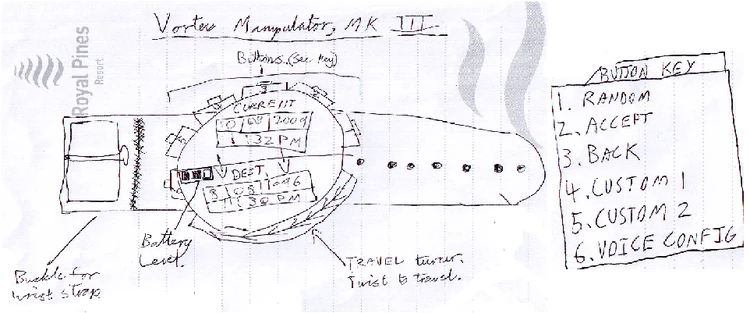 Vortex Manipulator, MK III
Royal Pines
Resort
Buttons. (see key)
CURRENT
2009
1:32 PM
DEST.
Battery
Level.
Buckle for
wrist strap.
TRAVEL turner.
Twist to travel.
BUTTON KEY
1. RANDOM
2. ACCEPT
3. BACK
4. CUSTOM 1
5. CUSTOM 2
6. VOICE CONFIG